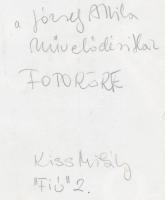 a József Attila
Művelődési Ház
FOTOKÖRE
Kiss Mihály
"Fiú" 2.